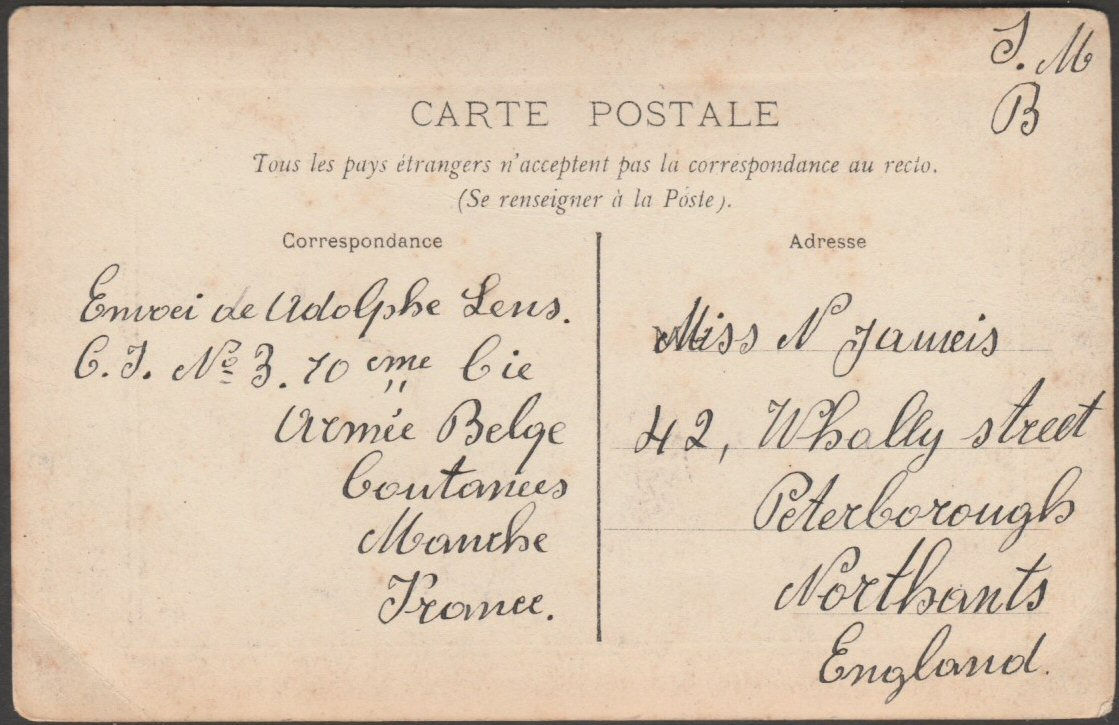 S. M
B
CARTE POSTALE
Tous les pays étrangers n'acceptent pas la correspondance au recto.
(Se renseigner à la Poste).
Correspondance
Envoi de Adolphe Lens.
C. I. No 3. 10 eme Cie
Armée Belge
Coutances
Manche
France.
Adresse
Miss N
42, Whally street
Peterborough
Northants
England.